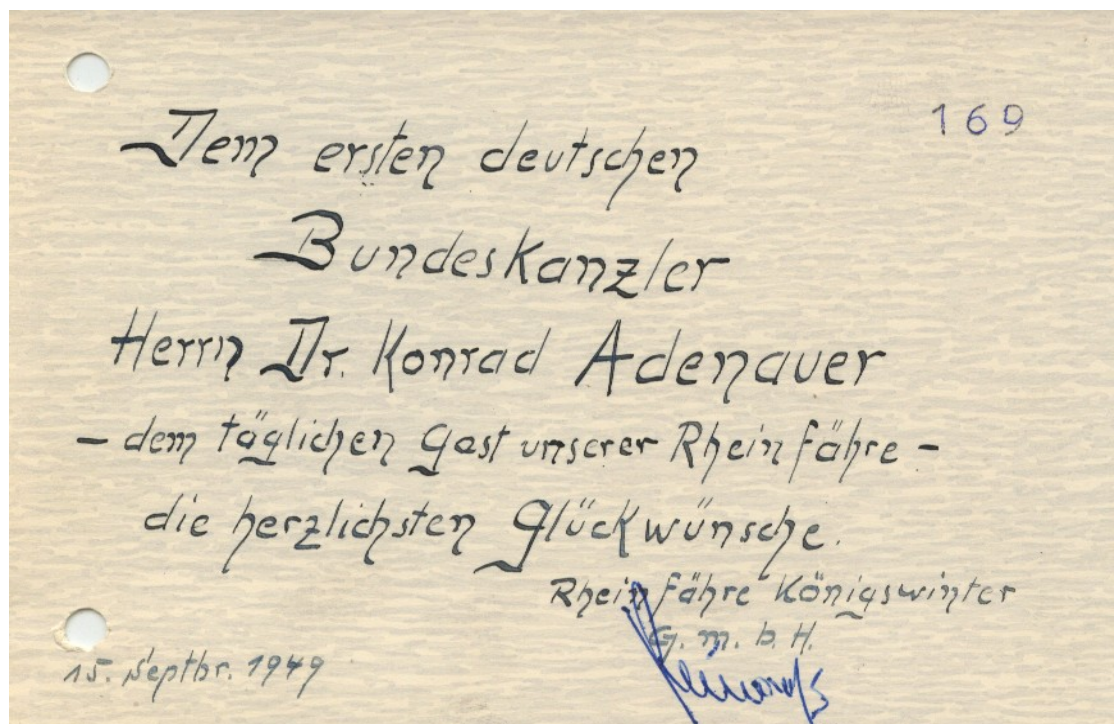 169
Dem ersten deutschen
Bundeskanzler
Herrn Dr. Konrad Adenauer
– dem täglichen Gast unserer Rheinfähre –
die herzlichsten Glückwünsche.
Rheinfähre Königswinter
G. m. b. H.
15. Septbr. 1949